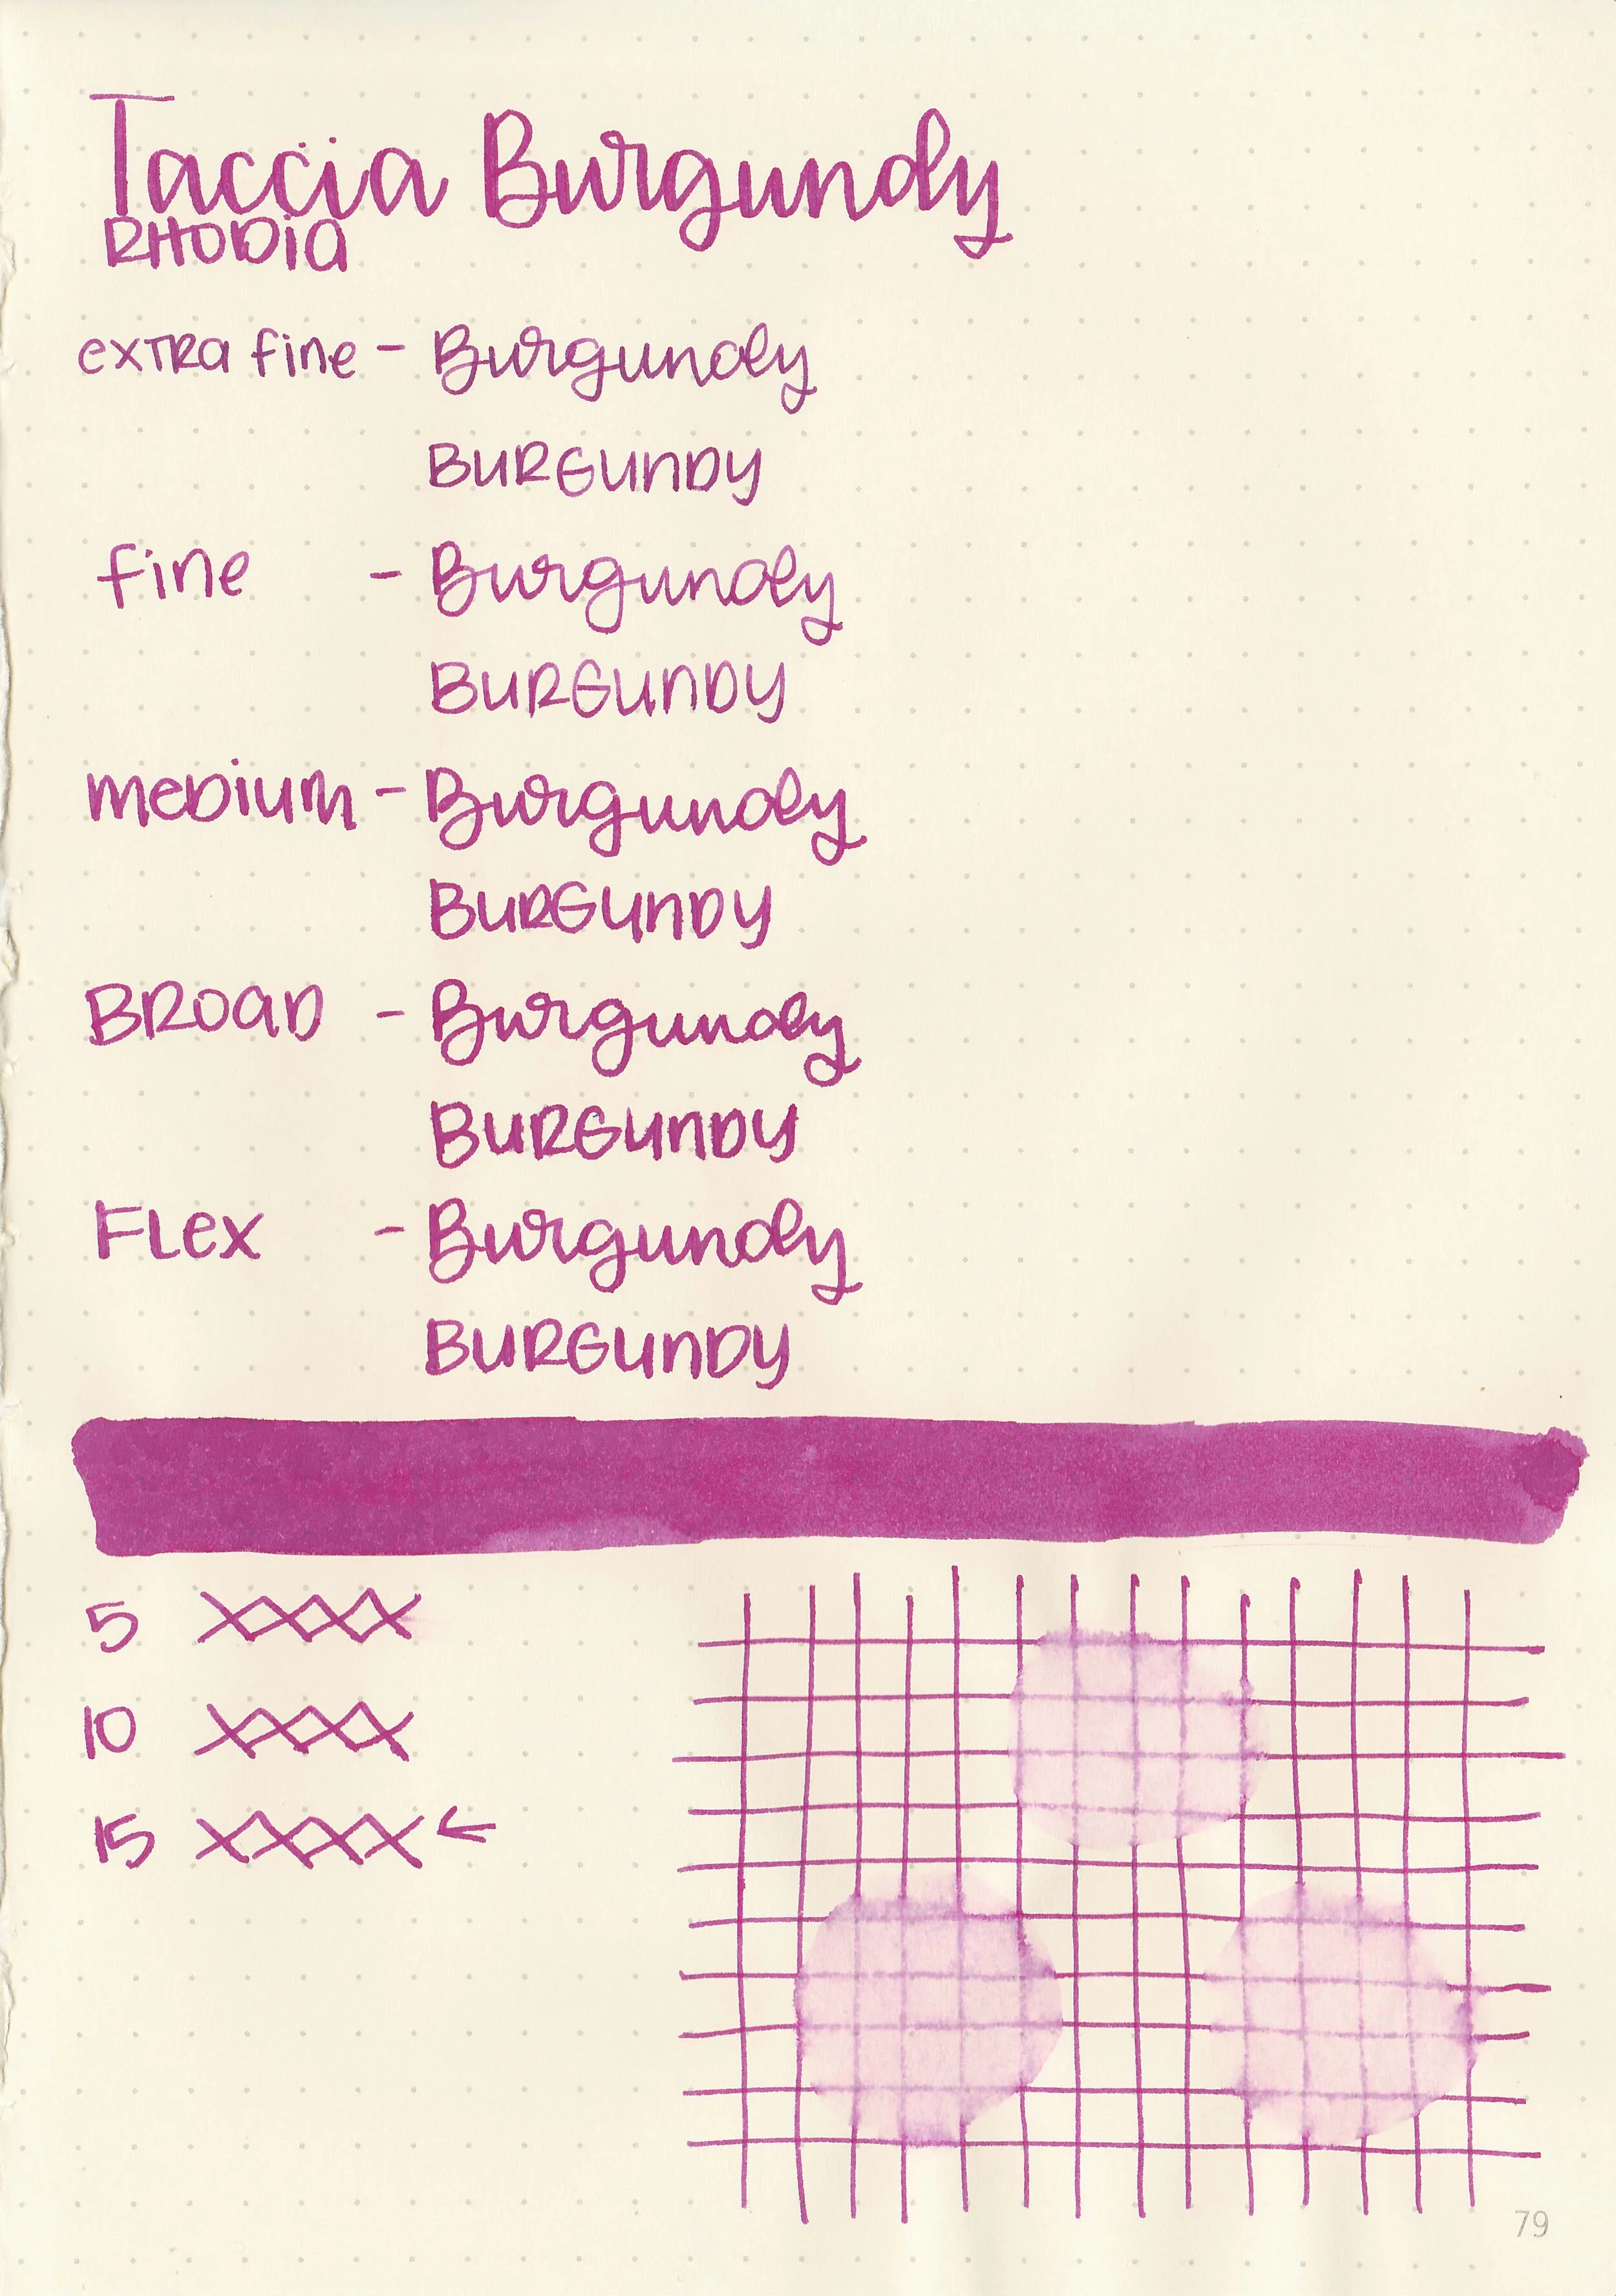 Taccia Burgundy
RHODIA
extra fine - Burgundy
BURGUNDY
fine - Burgundy
BURGUNDY
medium - Burgundy
BURGUNDY
BROAD - Burgundy
BURGUNDY
FLex - Burgundy
BURGUNDY
5 XXXX
10 XXXX
15 XXXX ←
79